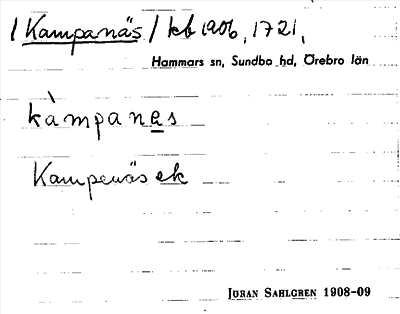 / Kampanäs / kb 1906, 1721,
Hammars sn, Sundbo hd, Örebro län
kàmpanes
Kampenäs ek
JÖRAN SAHLGREN 1908-09